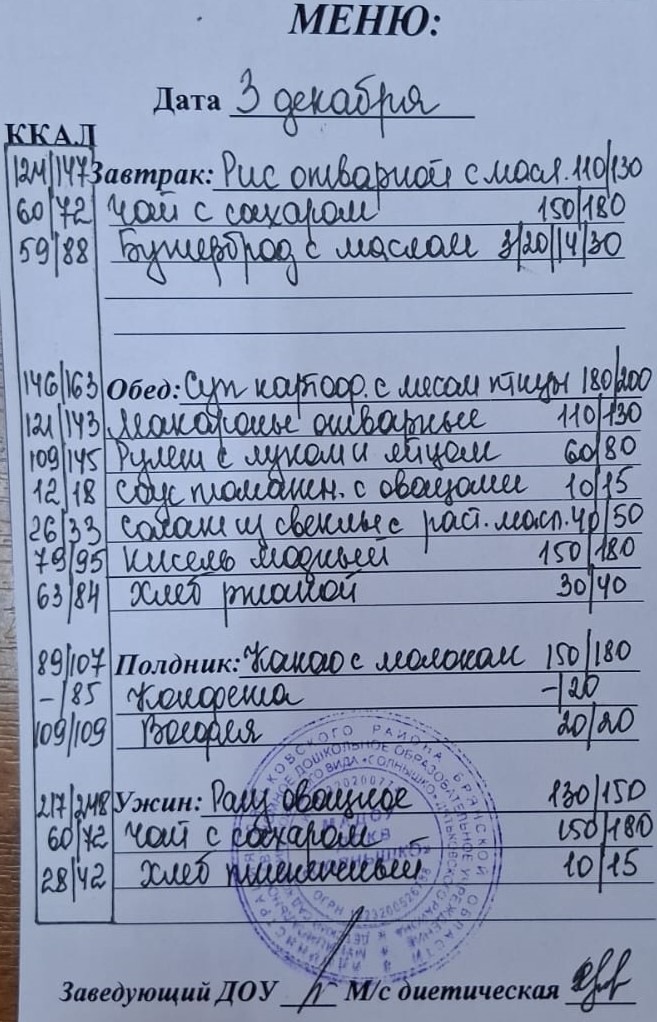 МЕНЮ:
Дата 3 декабря
ККАЛ
124/147 Завтрак: Рис отварной с масл. 110/130
60/72 Чай с сахаром 150/180
59/88 Бутерброд с маслом 3/20//4/30
146/163 Обед: Суп картоф. с мясом птицы 180/200
121/143 Макароны отварные 110/130
109/145 Рулет с луком и яйцом 60/80
12/18 Соус томатн. с овощами 10/15
26/33 Салат из свеклы с раст. масл. 40/50
79/95 Кисель модный 150/180
63/84 Хлеб ржаной 30/40
89/107 Полдник: Какао с молоком 150/180
-/85 Конфета -/20
109/109 Вафля 20/20
217/248 Ужин: Рагу овощное 130/150
60/72 Чай с сахаром 150/180
28/42 Хлеб пшеничный 10/15
Заведующий ДОУ М/с диетическая